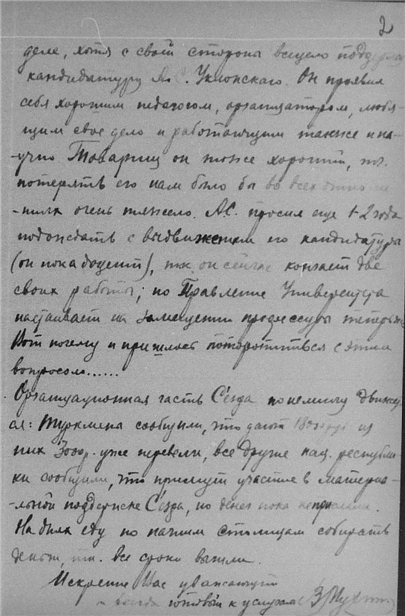 2
деле, хотя с своей стороны всецело поддерж
кандидатуру Ал. С. Уклонскаго. Он проявил
себя хорошим педагогом, организатором, любя-
щим свое дело и работающим также и на-
учно. Товарищ он тоже хороший, т.ч.
потерять его нам было бы во всех отно-
очень тяжело. А.С. просил еще 1-2 года
подождать с выдвижением его кандидатуры
(он пока доцент), т.к. он сейчас кончает две
своих работы; но Правление Университета
настаивает на замещении профессуры теперь.
Вот почему и пришлось поторопиться с этим
вопросом......
Организационная часть Съезда понемногу движет-
ся: Туркмена сообщили, что дают из
них 300р. уже перевели, все другие нац. республи-
ки сообщили, что примут участие в материа-
льной поддержке Съезда, но денег пока не прислали.
На днях еду по нашим столицам собирать
деньги, т.к. все сроки вышли.
Искренне Вас уважающий
и всегда готовый к услугам